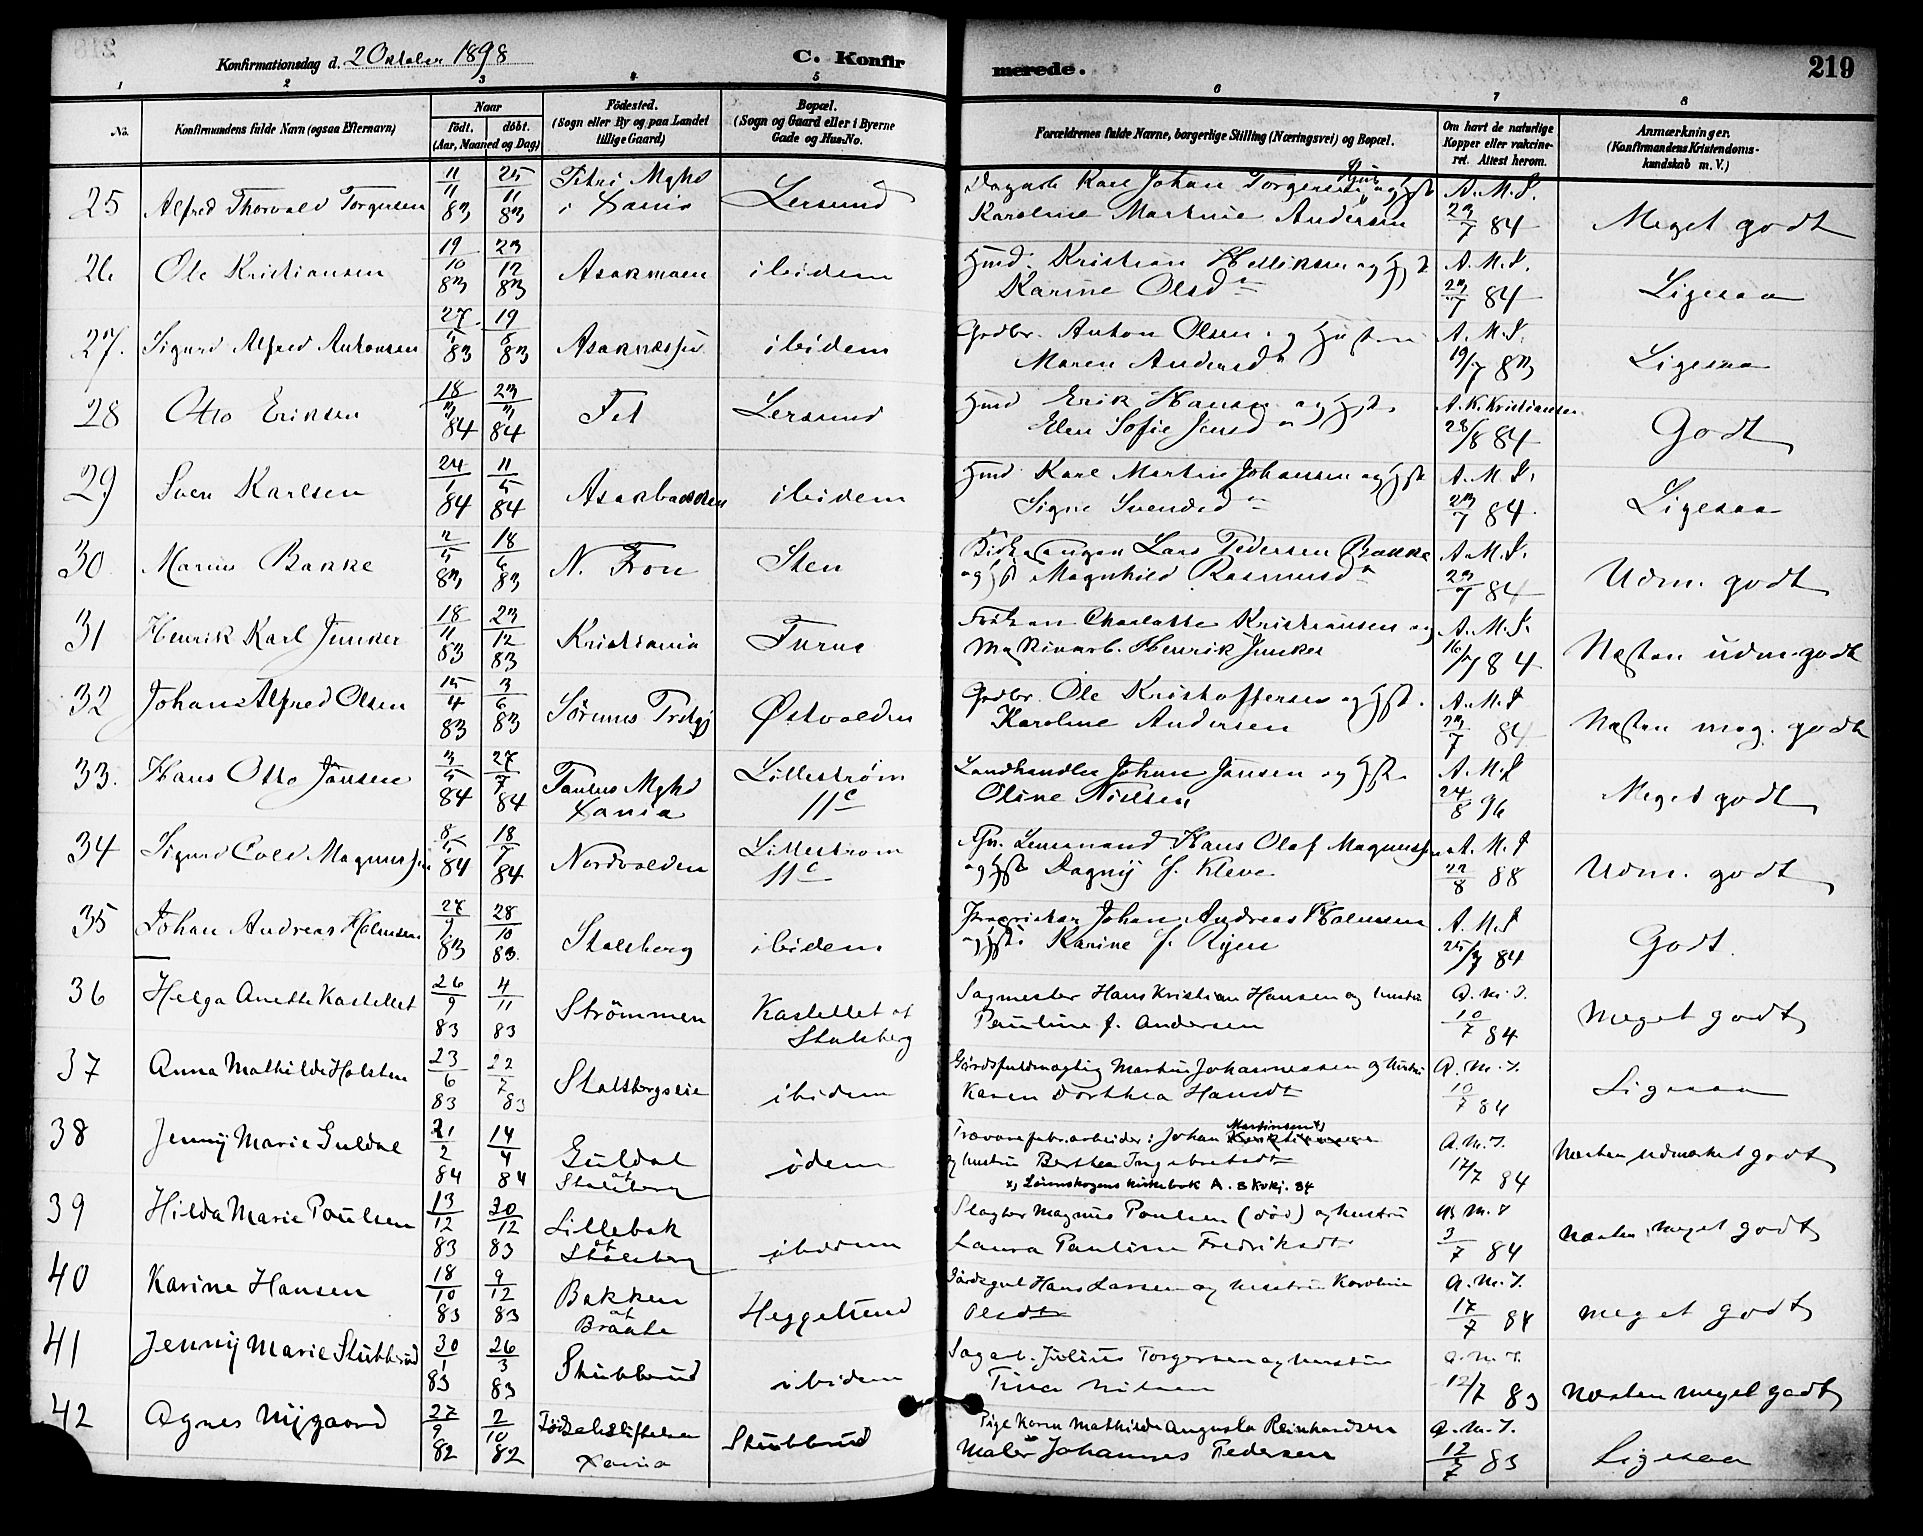 Konfirmationsdag d. 2 Oktober 1898
C. Konfirmerede.
219
1 2 3 4 5 6 7 8
No.
Konfirmandens fulde Navn (ogsaa Efternavn)
Naar
født. døbt.
(Aar, Maaned og Dag)
Fødested.
(Sogn eller By og paa Landet tillige Gaard)
Bopæl.
(Sogn og Gaard eller i Byerne Gade og Hus-No.
Forældrenes fulde Navne, borgerlige Stilling (Næringsvei) og Bopæl.
Om havt de naturlige Kopper eller vakcineret. Attest herom.
Anmærkninger.
(Konfirmandens Kristendomskundskab m. V.)
25 Alfred Thorvald Torgersen 11/11 83 25/11 83 Petri Mghd i Xania Lersund Dagarb. Karl Johan Torgersen og Hst
Karoline Martine Andersen A. M. S. 23/7 84 Meget godt
26 Ole Kristiansen 19/10 83 23/12 83 Asakmoen ibidem Hmd. Kristian Helliksen og Hst
Karine Olsd A. M. S. 23/7 84 Ligesaa
27. Sigurd Alfred Antonsen 27/5 83 19/8 83 ibidem Grdbr. Anton Olsen og Hustru
Maren Andersd A. M. S. 19/7 83 Ligesaa
28 Otto Eriksen 18/3 84 23/3 84 Fet Lersund Hmd Erik Hansen og Hst.
Elen Sofie Jensd A. K. Kristiansen 28/8 84 Godt
29 Sven Karlsen 24/1 84 11/5 84 Asakbakken ibidem Hmd Karl Martin Johansen og Hst
Signe Svendsd A. M. S. 23/7 84. Ligesaa
30 Marius Bakke 2/5 83 18/6 83 N. Fron Sten Kirkesanger Lars Pedersen Bakke
og Hst Magnhild Rasmusd A. M. S. 23/7 84 Udm. godt
31 Henrik Karl Junker 18/11 83 23/12 83 Kristiania Furua Charlotte Kristiansen og
Maskinarb. Henrik Junker A. M. S. 16/7 84 Næsten udm. godt
32 Johan Alfred Olsen 15/4 83 3/6 83 Østvolden Grdbr. Ole Kristoffersen og Hst.
Karoline Andersen A. M. S 23/7 84 Næsten meg. godt
33. Hans Otto Jansen 3/5 84 27/7 84 Paulus Mghd Xania Lillestrøm 11c Landhandler Johan Jansen og Hst.
Oline Nielsen A. M. S 24/8 96 Meget godt
34 Sigurd Cold Magnussen 8/5 84 18/7 84 Nordvolden Lillestrøm 11c Lensmand Hans Olaf Magnussen
og Hst Dagny f. Kleve A. M. S 22/8 88 Udm. godt
35 Johan Andreas Holmsen 27/9 83 28/10 83. Stalsberg ibidem Johan Andreas Holmsen
og Hst. Karine f. Ryen A. M. S 25/7 84 Godt.
36 Helga Anette Kastellet 26/9 83 4/11 83 Strömmen Kastellet af Stalsberg Sagmester Hans Kristian Hansen og hustru
Pauline f. Andersen A. M. S. 10/7 84 Meget godt
37 Anna Mathilde Holsten 23/6 83 22/7 83 Stalsbergseie ibidem Gårdsfuldmægtig Martin Johannessen og hustru
Karen Dorthea Hansdt A. M. S. 10/7 84 Ligesaa
38 Jenny Marie Guldal 21/2 84 14/4 84 Guldal af Stalsberg idem Trævarefabr.arbeider: Johan Martinsen x)
og hustru Berthea Ingebretsdt
x) Lørenskogens kirkebok A. M. S. 17/7 84 Næsten udmærket godt
39 Hilda Marie Poulsen 13/12 83 30/12 83 Lillebak af Stalsberg ibidem Slagter Magnus Poulsen (død) og hustru
Laura Pauline Fredriksdt A. M. S 3/7 84 Næsten meget godt
40 Karine Hansen 18/10 83 9/12 83 Bakken af Braate Heggelund Gårdsgut Hans Larsen og hustru Karoline
Olsdt A. M. S. 17/7 84 meget godt
41 Jenny Marie Stubberud 30/1 83 26/3 83 Stubberud ibidem Sagarb. Julius Torgersen og hustru
Tina Nilsen A. M. S. 12/7 83 Næsten meget godt
42 Agnes Nygaard 27/9 82 2/10 82 Fødselsstiftelsen Xania Stubberud Pige Karen Mathilde Augusta Reinhardsen
Maler Johannes Pedersen A. M. S. 12/7 83 Ligesaa